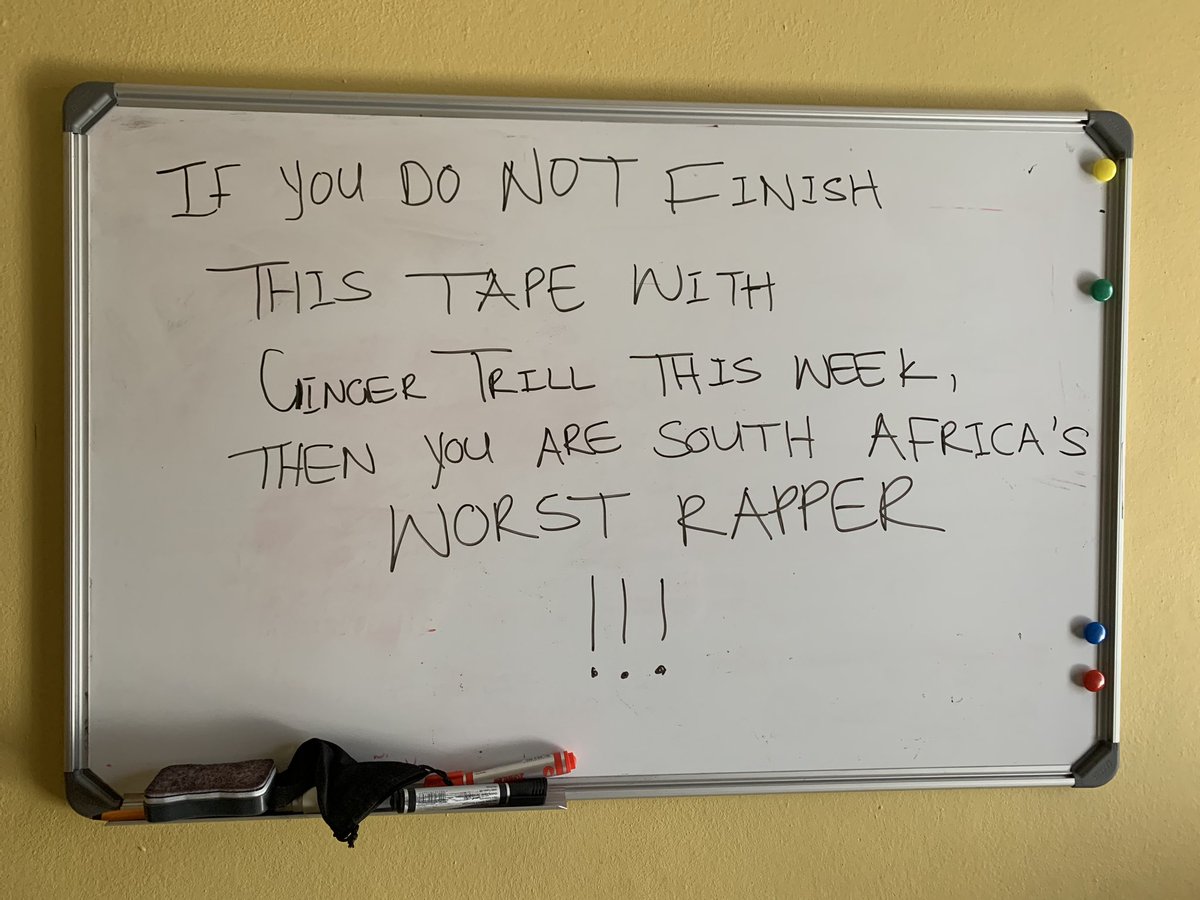 IF YOU DO NOT FINISH
THIS TAPE WITH
GINGER TRILL THIS WEEK,
THEN YOU ARE SOUTH AFRICA'S
WORST RAPPER
!!!